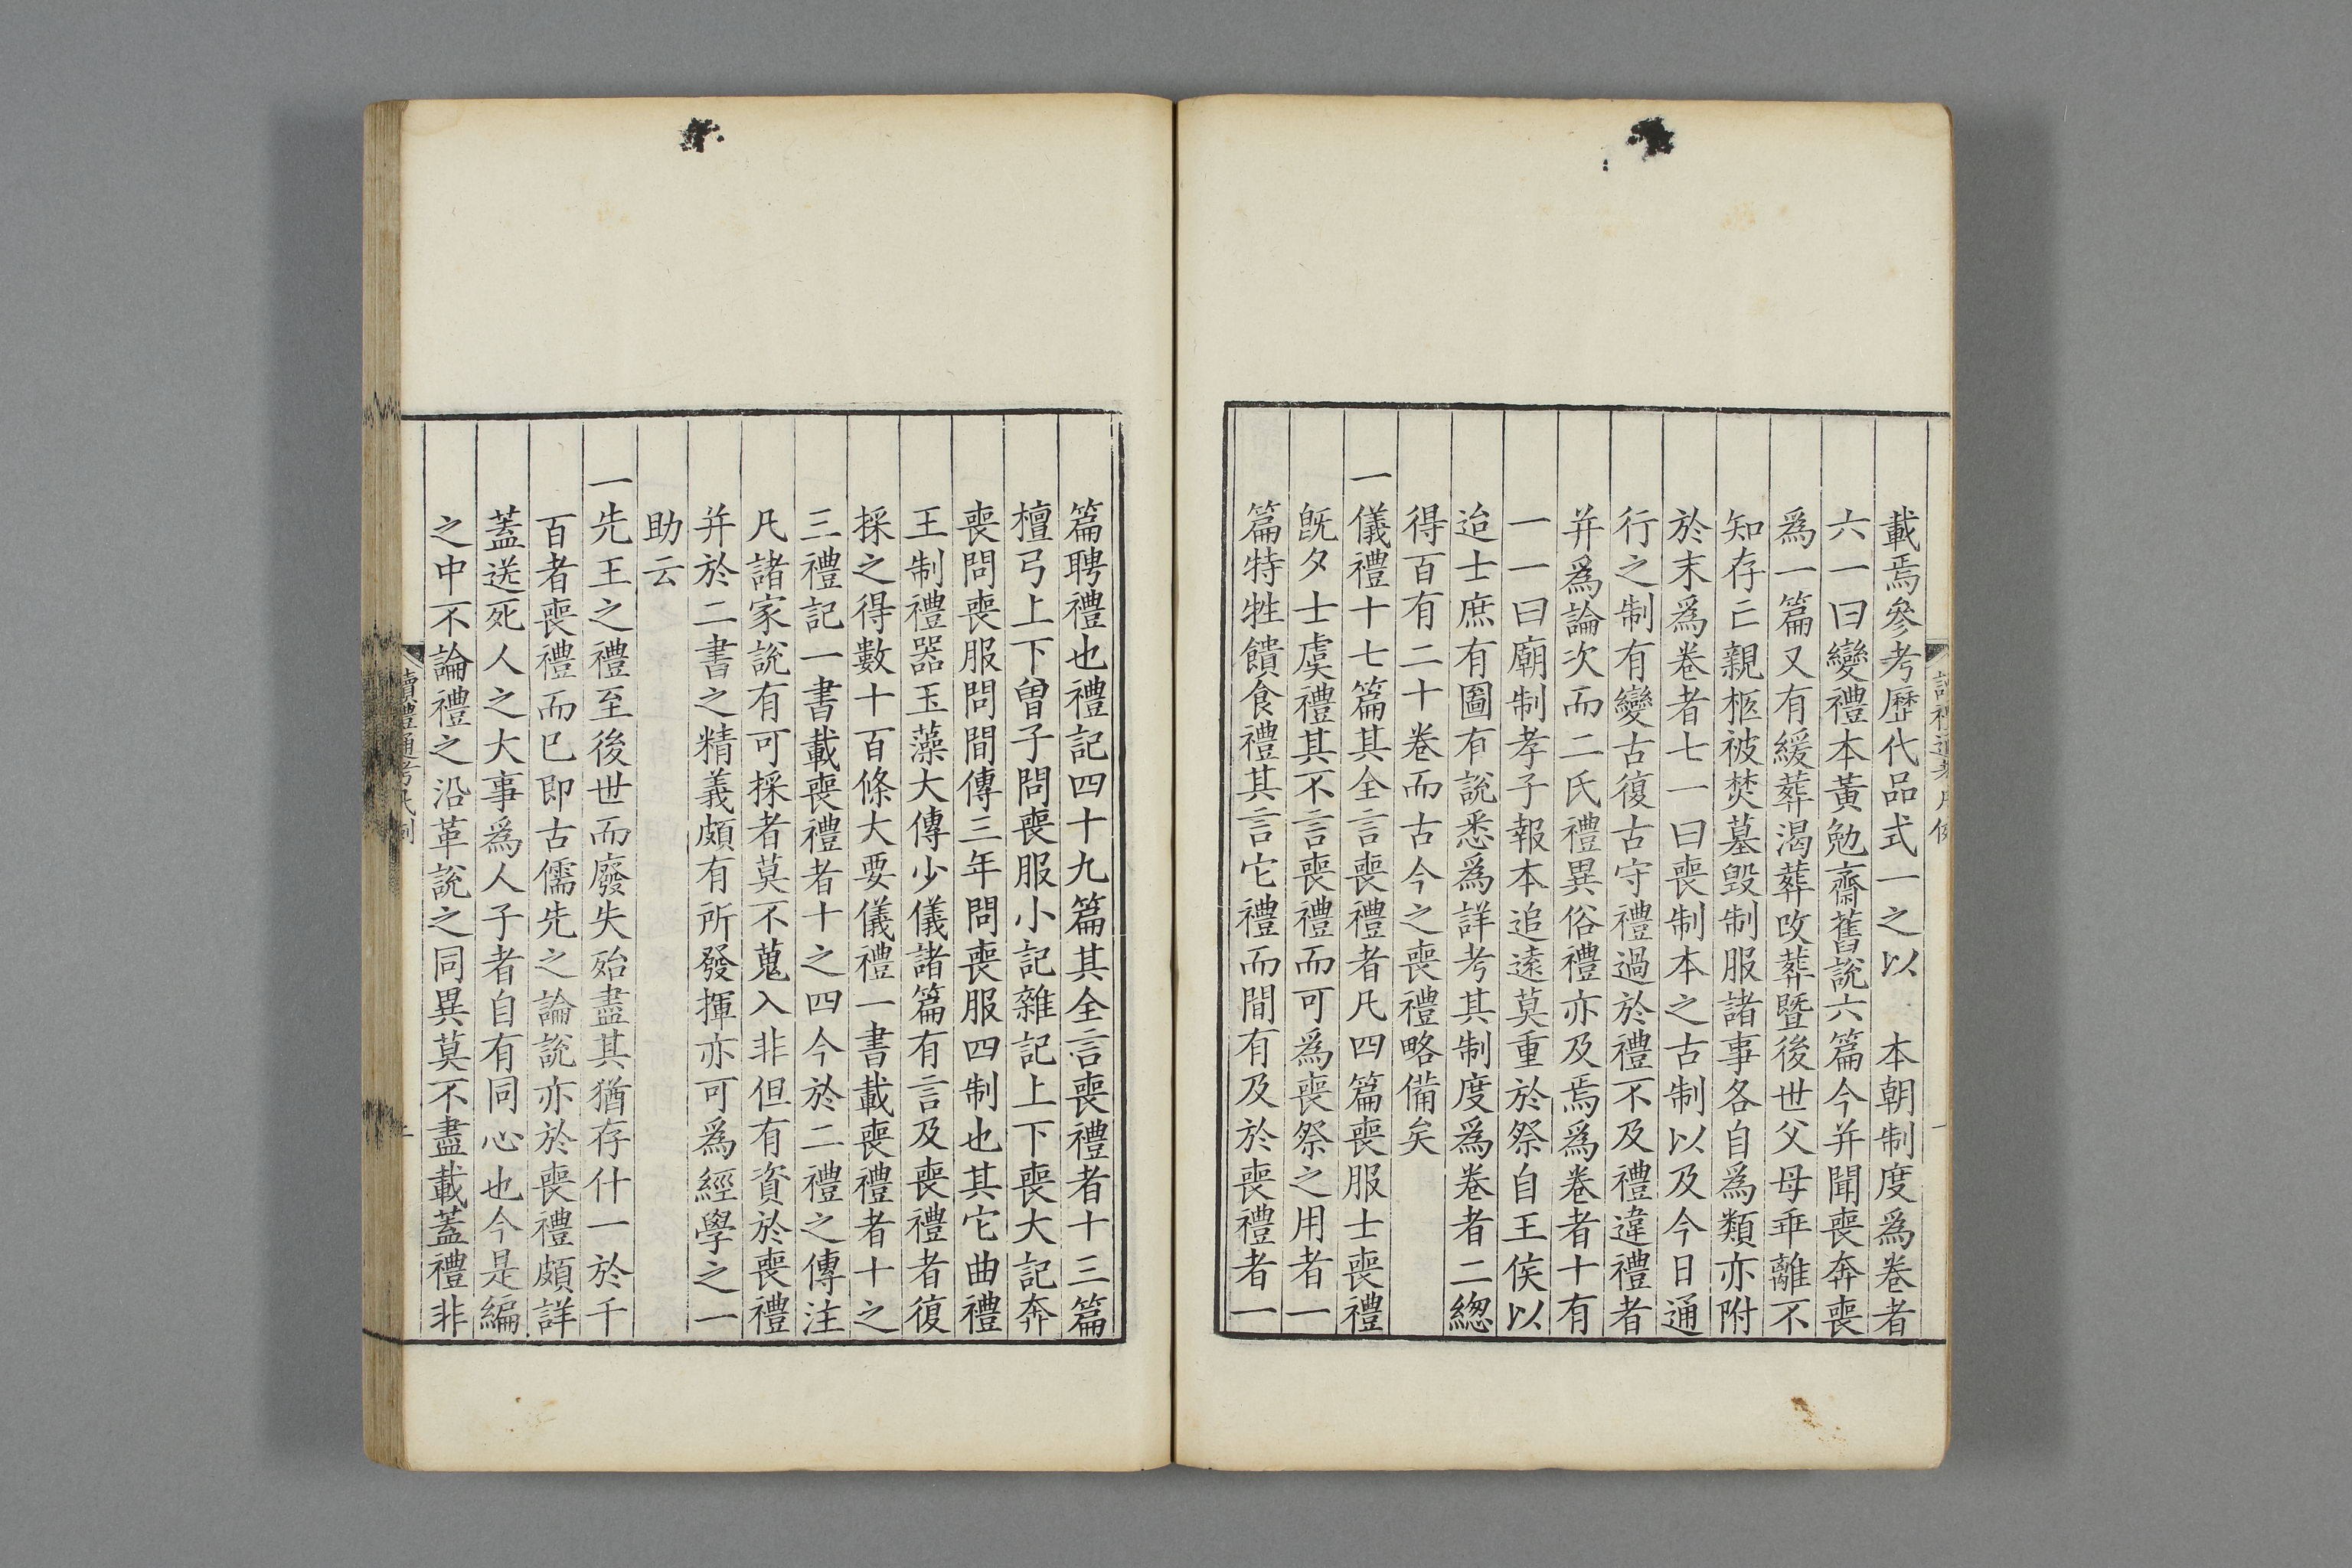 載焉參考歷代品式一之以　本朝制度爲卷者
六一曰變禮本黃勉齋舊說六篇今并聞喪奔喪
爲一篇又有緩葬渴葬改葬暨後世父母乖離不
知存亡親柩被焚墓毀制服諸事各自爲類亦附
於末爲卷者七一曰喪制本之古制以及今日通
行之制有變古復古守禮過於禮不及禮違禮者
并爲論次而二氏禮異俗禮亦及焉爲卷者十有
一一曰廟制孝子報本追遠莫重於祭自王侯以
迨士庶有圖有說悉爲詳考其制度爲卷者二總
得百有二十卷而古今之喪禮略備矣
一儀禮十七篇其全言喪禮者凡四篇喪服士喪禮
旣夕士虞禮其不言喪禮而可爲喪祭之用者一
篇特牲饋食禮其言它禮而間有及於喪禮者一
篇聘禮也禮記四十九篇其全言喪禮者十三篇
檀弓上下曾子問喪服小記雜記上下喪大記奔
喪問喪服問間傳三年問喪服四制也其它曲禮
王制禮器玉藻大傳少儀諸篇有言及喪禮者復
採之得數十百條大要儀禮一書載喪禮者十之
三禮記一書載喪禮者十之四今於二禮之傳注
凡諸家說有可採者莫不蒐入非但有資於喪禮
并於二書之精義頗有所發揮亦可爲經學之一
助云
一先王之禮至後世而廢失殆盡其猶存什一於千
百者喪禮而已即古儒先之論說亦於喪禮頗詳
蓋送死人之大事爲人子者自有同心也今是編
之中不論禮之沿革說之同異莫不盡載蓋禮非
讀禮通考